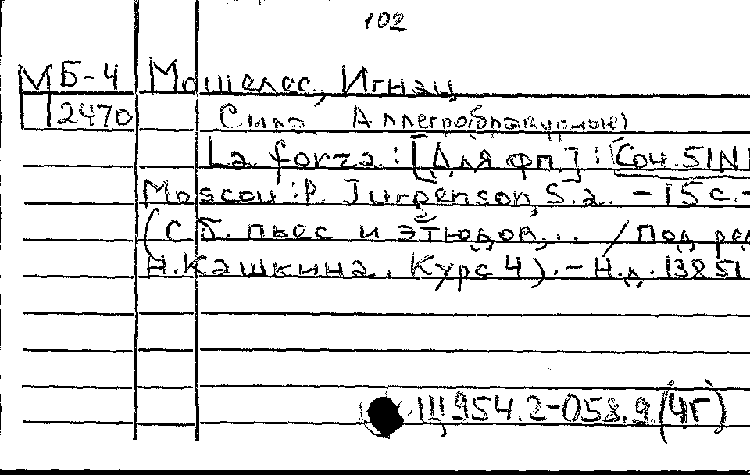 102
МБ-4 Мошелес, Игнац
П 2470 Сила Аллегро(бравурное)
La forza : [Для фп.] : Соч. 51 N1
Moscou : P. Jurgenson, S.a. - 15 с. -
(Сб. пьес и этюдов, .. / Под ред
Н. Кашкина. Курс 4). - Н.д. 13851
Щ954.2-058.9(4Г)